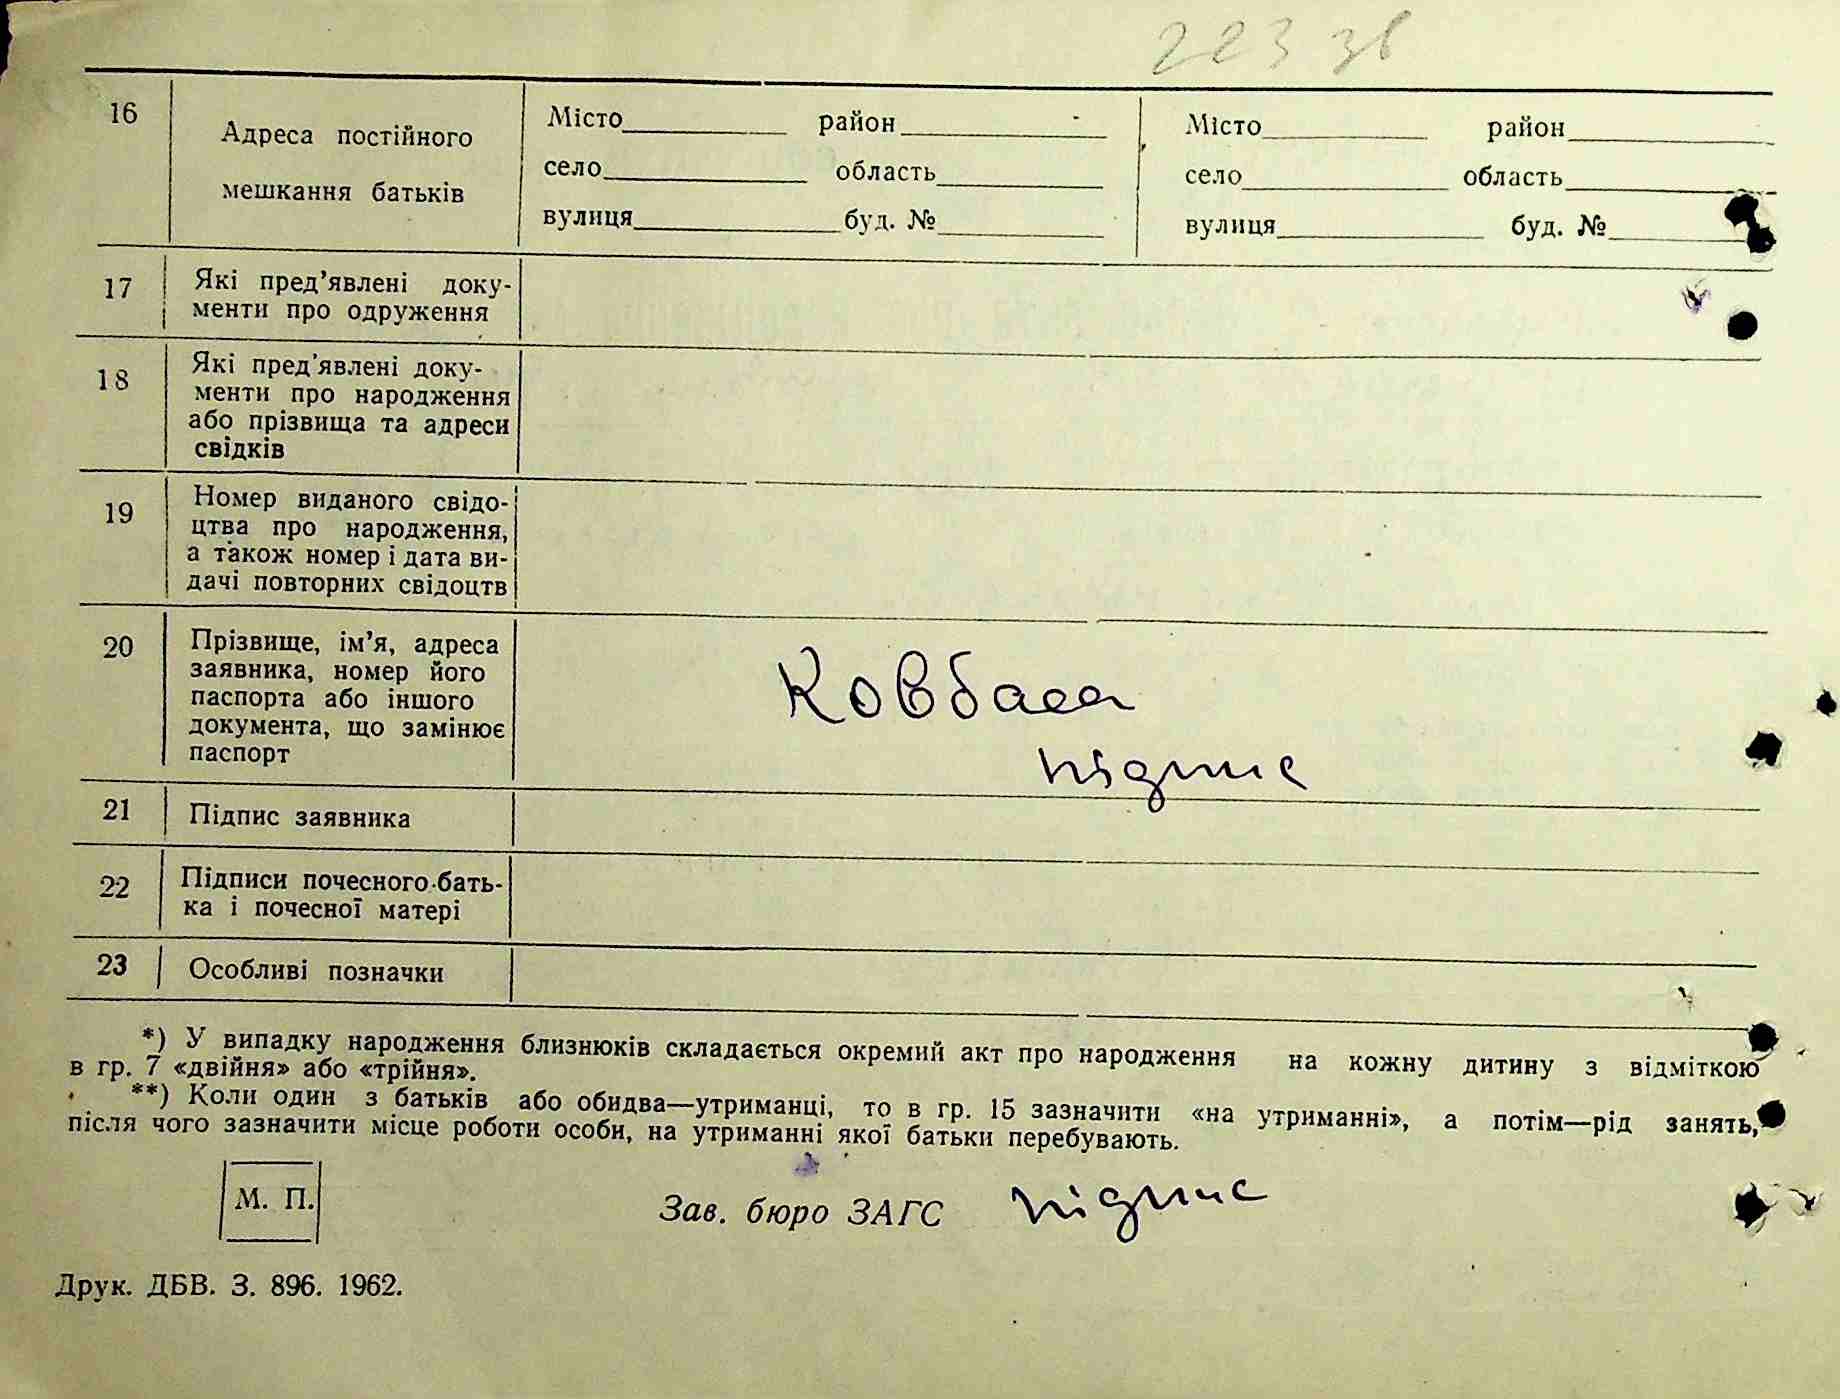 223 зв
16 Адреса постійного мешкання батьків
Місто район
село область
вулиця буд. №
Місто район
село область
вулиця буд. №
17 Які пред’явлені доку-
менти про одруження
18 Які пред’явлені доку-
менти про народження
або прізвища та адреси
свідків
19 Номер виданого свідо-
цтва про народження,
а також номер і дата ви-
дачі повторних свідоцтв
20 Прізвище, ім’я, адреса
заявника, номер його
паспорта або іншого
документа, що замінює
паспорт
Ковбаса
підпис
21 Підпис заявника
22 Підписи почесного бать-
ка і почесної матері
23 Особливі позначки
*) У випадку народження близнюків складається окремий акт про народження на кожну дитину з відміткою
в гр. 7 «двійня» або «трійня».
**) Коли один з батьків або обидва—утриманці, то в гр. 15 зазначити «на утриманні», а потім—рід занять,
після чого зазначити місце роботи особи, на утриманні якої батьки перебувають.
М. П.
Зав. бюро ЗАГС підпис
Друк. ДБВ. З. 896. 1962.